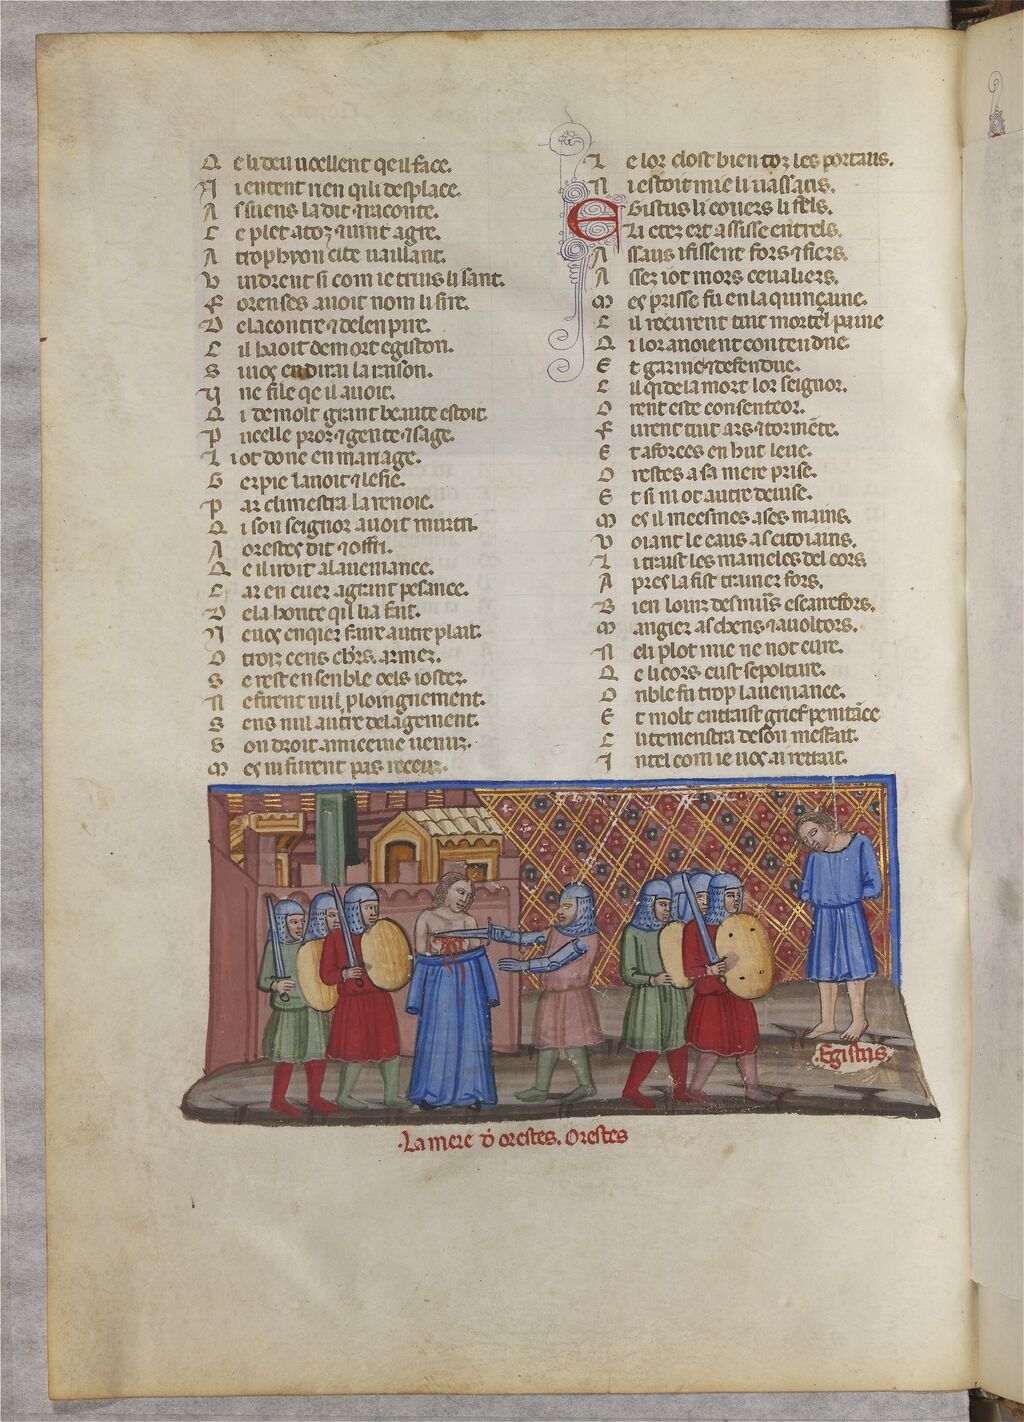 Q e li deu uoellent qe il face.
N i entent rien qi li desplace.
A suens la dit ⁊ raconte.
C e plet atoz
A trophion cite uaillant.
V indrent si com ie truis lisant.
F orenses auoit nom li sire.
D e la contre ⁊ de lenpire.
C il haoit de mort egiston.
S i uos en dirai la raison.
V ne fille qe il auoit.
Q i de molt grant beaute estoit.
P ucelle proz ⁊ gente ⁊ sage.
L i ot done en mariage.
G erpie lauoit ⁊ lesie.
P ar climestra la renoie.
Q i son seignor auoit murtri.
A orestes dit ⁊ offri.
Q e il iroit a la ueniance.
C ar en cuer a grant pesance.
D e la honte qil li a fait.
N e uos enqier faire autre plait.
O troiz cens chrs armez.
S e rest ensenble o els iostez.
N e firent nul ploingnement.
S ens nul autre delagement.
S on droit
M es ni furent pas receuz.
L e lor clost bien toz les portaus.
N i estoit mie li uassaus.
E Gistus li couers li fels.
L i
A ssaus i fissent fors ⁊ fiers.
A ssez i ot mors ceualiers.
M es prisse fu en la quinçaine.
C il reçurent tuit mortel paine
Q i lor auoient contendue.
E t garnie ⁊ defendue.
C il qi de la mort lor seignor.
O rent este consenteor.
F urent tuit ars ⁊ tormete.
E t a forces en haut leue.
O restes a sa mere prise.
E t si ni ot autre deuise.
M es il meesmes a ses mains.
V oiant le eaus
L i traist les mameles del cors
A pres la fist trainer fors.
B ien loinz des murs
M angier as chens ⁊ a uoltors.
N eli plot mie ne not cure.
Q e li cors eust sepolture.
O rible fu trop la ueniance.
E t molt entraist grief penitace
C litemestra de son meffait.
I ntel com ie uos ai retrait.
Egistus
La mere d orestes. Orestes